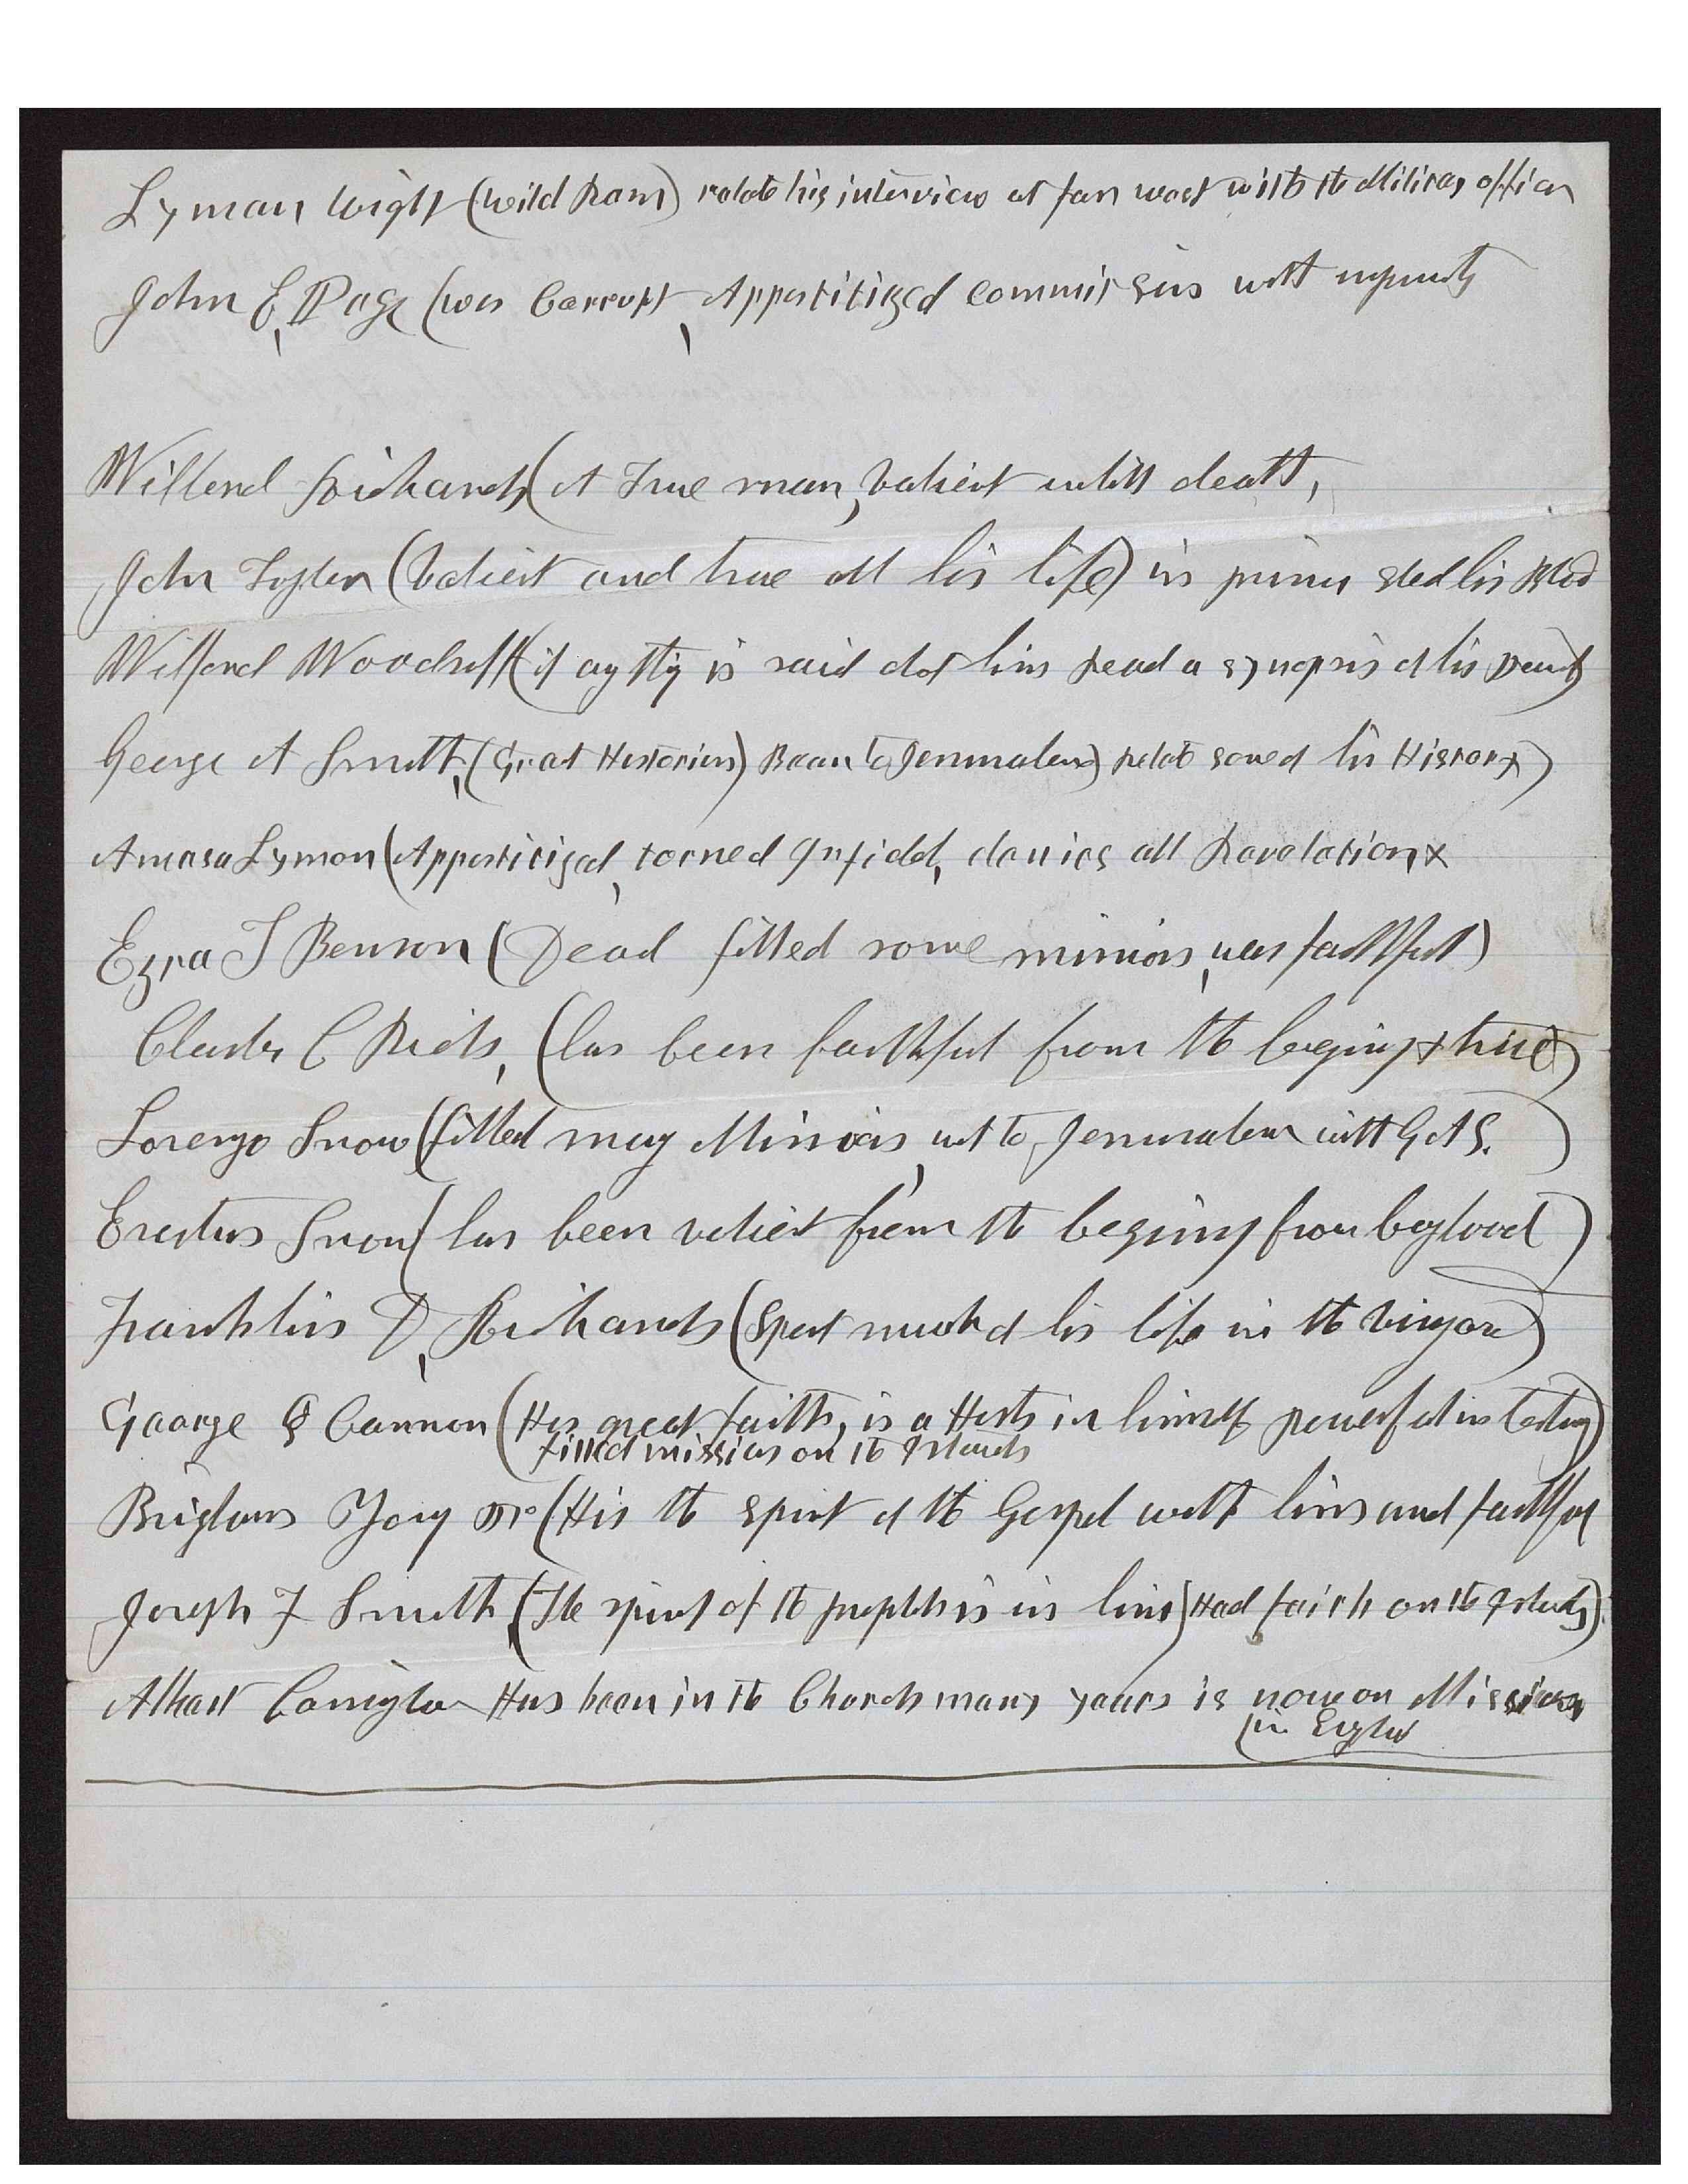 Lyman Wight (wild Ram) relate his interview at far west with the Military officer
John E, Page (was Corrupt, Appostitized commit sins with impunity
Willard Richards (A True man, valient untill death,
John Taylor (valient and true all his life) in prison shed his Blod
Wilford Woodruff (if any thing is said of him Read a synopsis of his
George A Smith, (Great Historian) Bean to Jerrusalem) relate saved his History)
Amasa Lyman (Appostitized, torned Infidel, denies all Revelation X
Ezra T Benson (Dead filled some missions, was faithful)
Charles C Rich, (has been faithful from the begining & true)
Lorenzo Snow (filled many Missions, wet to Jerrusalem with G A S.)
Erastus Snow (has been valient from the begining from boyhood)
Franklin D, Richards (Spent much of his life in the vinyard)
George Q Cannon (Has great faith, is a Hosts in himself powerful in
filled mission on the Islands
Brigham Young Jr (His the spirit of the Gospel with him and faithful
Joseph F Smith (The spirit of the prophets is in him) Had faith on the Islands)
Albert Carrington Has been in the Church many years is now on Mission
(in England